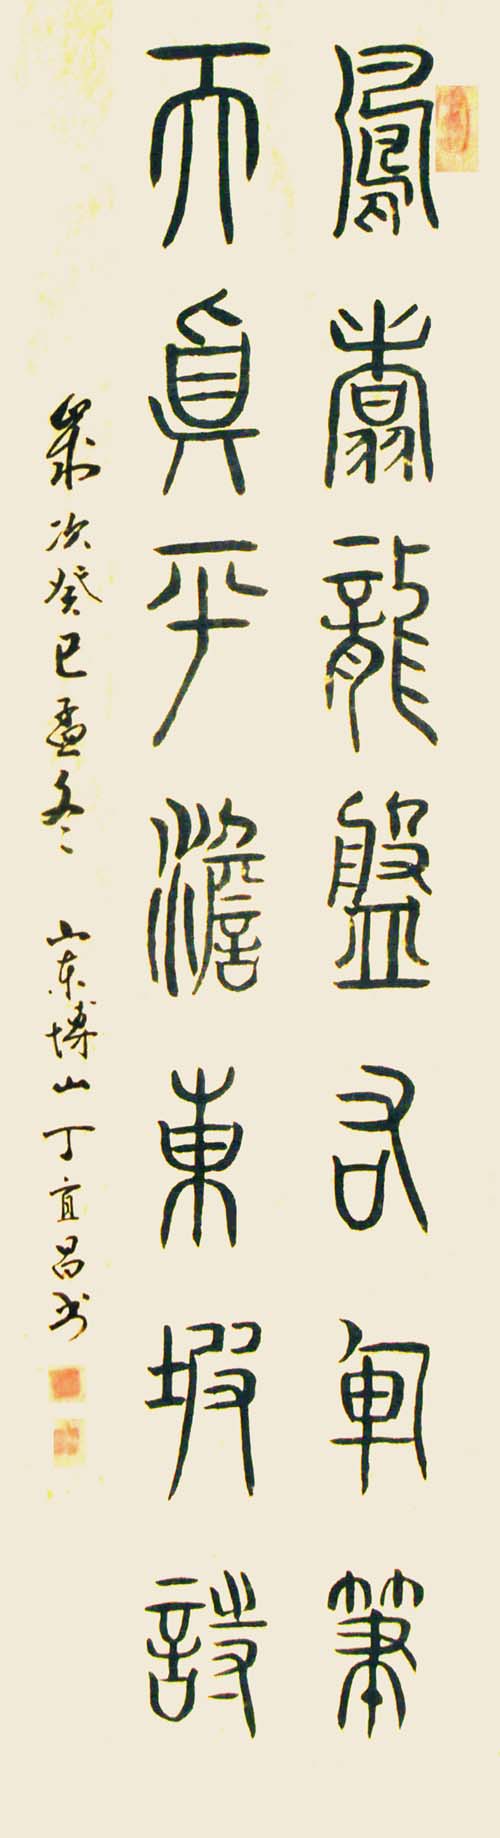 鳳翥龍盤右軍筆
天真平澹東坡詩
歲次癸巳孟冬 山東博山丁宜昌書